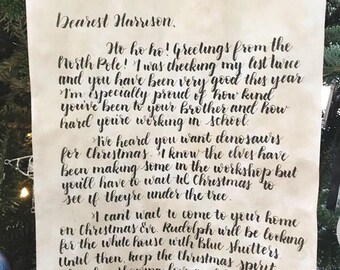 Dearest Harrison,
Ho ho ho! Greetings from the
North Pole! I was checking my list twice
and you have been very good this year
I'm especially proud of how kind
you've been to your brother and how
hard you're working in school.
I've heard you want dinosaurs
for Christmas. I know the elves have
been making some in the workshop but
you'll have to wait til Christmas to
see if they're under the tree.
I can't wait to come to your home
on Christmas Eve. Rudolph will be looking
for the white house with blue shutters.
Until then, keep the Christmas spirit